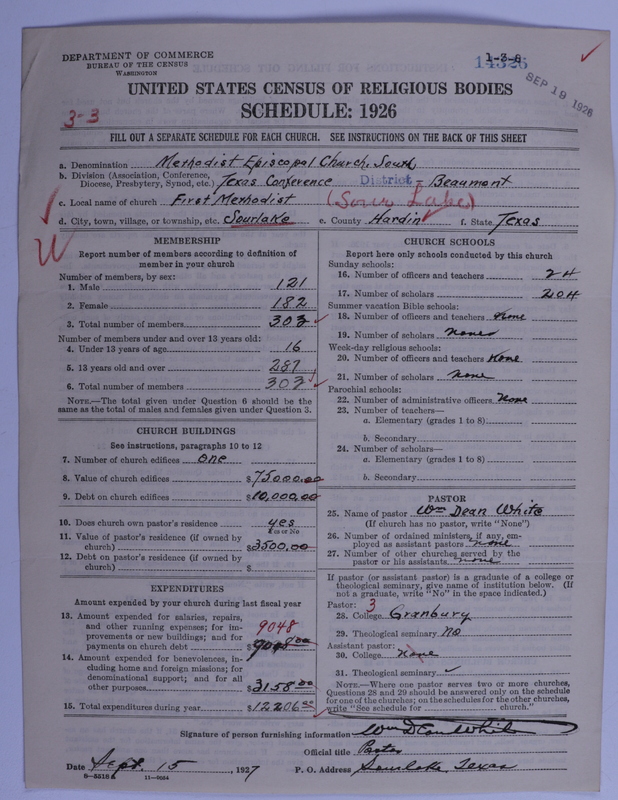 DEPARTMENT OF COMMERCE
BUREAU OF THE CENSUS
WASHINGTON
1-3-8
14326
SEP 19 1928
UNITED STATES CENSUS OF RELIGIOUS BODIES
SCHEDULE: 1926
3-3
FILL OUT A SEPARATE SCHEDULE FOR EACH CHURCH. SEE INSTRUCTIONS ON THE BACK OF THIS SHEET
a. Denomination Methodist Episcopal Church, South
b. Division (Association, Conference, Diocese, Presbytery, Synod, etc.) Texas Conference District - Beaumont
c. Local name of church First Methodist (Sour Lake)
d. City, town, village, or township, etc. Sourlake e. County Hardin f. State Texas
MEMBERSHIP
Report number of members according to definition of
member in your church
Number of members, by sex:
1. Male 121
2. Female 182
3. Total number of members 303
Number of members under and over 13 years old:
4. Under 13 years of age 16
5. 13 years old and over 287
6. Total number of members 303
NOTE.—The total given under Question 6 should be
same as the total of males and females given under Question 3.
CHURCH BUILDINGS
See instructions, paragraphs 10 to 12
7. Number of church edifices one
8. Value of church edifices $75000.00
9. Debt on church edifices $10,000.00
10. Does church own pastor's residence yes
Yes or No
11. Value of pastor's residence (if owned by
church) $3500.00
12. Debt on pastor's residence (if owned by
church) $
EXPENDITURES
Amount expended by your church during last fiscal year
13. Amount expended for salaries, repairs,
and other running expenses; for im-
provements or new buildings; and for
payments on church debt 9048 $9048 00
14. Amount expended for benevolences, in-
cluding home and foreign missions; for
denominational support; and for all
other purposes $3158 00
15. Total expenditures during year $12206 00
CHURCH SCHOOLS
Report here only schools conducted by this church
Sunday schools:
16. Number of officers and teachers 24
17. Number of scholars 204
Summer vacation Bible schools:
18. Number of officers and teachers None
19. Number of scholars None
Week-day religious schools:
20. Number of officers and teachers None
21. Number of scholars None
Parochial schools:
22. Number of administrative officers None
23. Number of teachers—
a. Elementary (grades 1 to 8)
b. Secondary
24. Number of scholars—
a. Elementary (grades 1 to 8)
b. Secondary
PASTOR
25. Name of pastor Wm Dean White
(If church has no pastor, write "None")
26. Number of ordained ministers, if any, em-
ployed as assistant pastors none
27. Number of other churches served by the
pastor or his assistants none
If pastor (or assistant pastor) is a graduate of a college or
theological seminary, give name of institution below. (If
not a graduate, write "No" in the space indicated.)
Pastor: 3
28. College Granbury
29. Theological seminary No
Assistant pastor:
30. College None
31. Theological seminary
NOTE.—Where one pastor serves two or more churches,
Questions 28 and 29 should be answered only on the schedule
for one of the churches; on the schedules for the other churches,
write "See schedule for church."
Signature of person furnishing information Wm Dean White
Official title Pastor
Date Sept. 15, 1927 P. O. Address Sourlake, Texas
6-5518a 11-9024